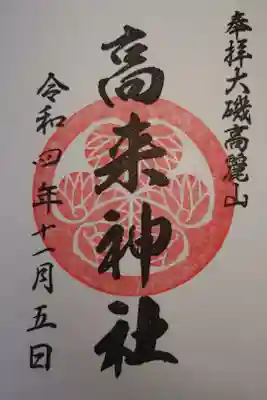 奉拝大磯高麗山
高来神社
令和四年十一月五日